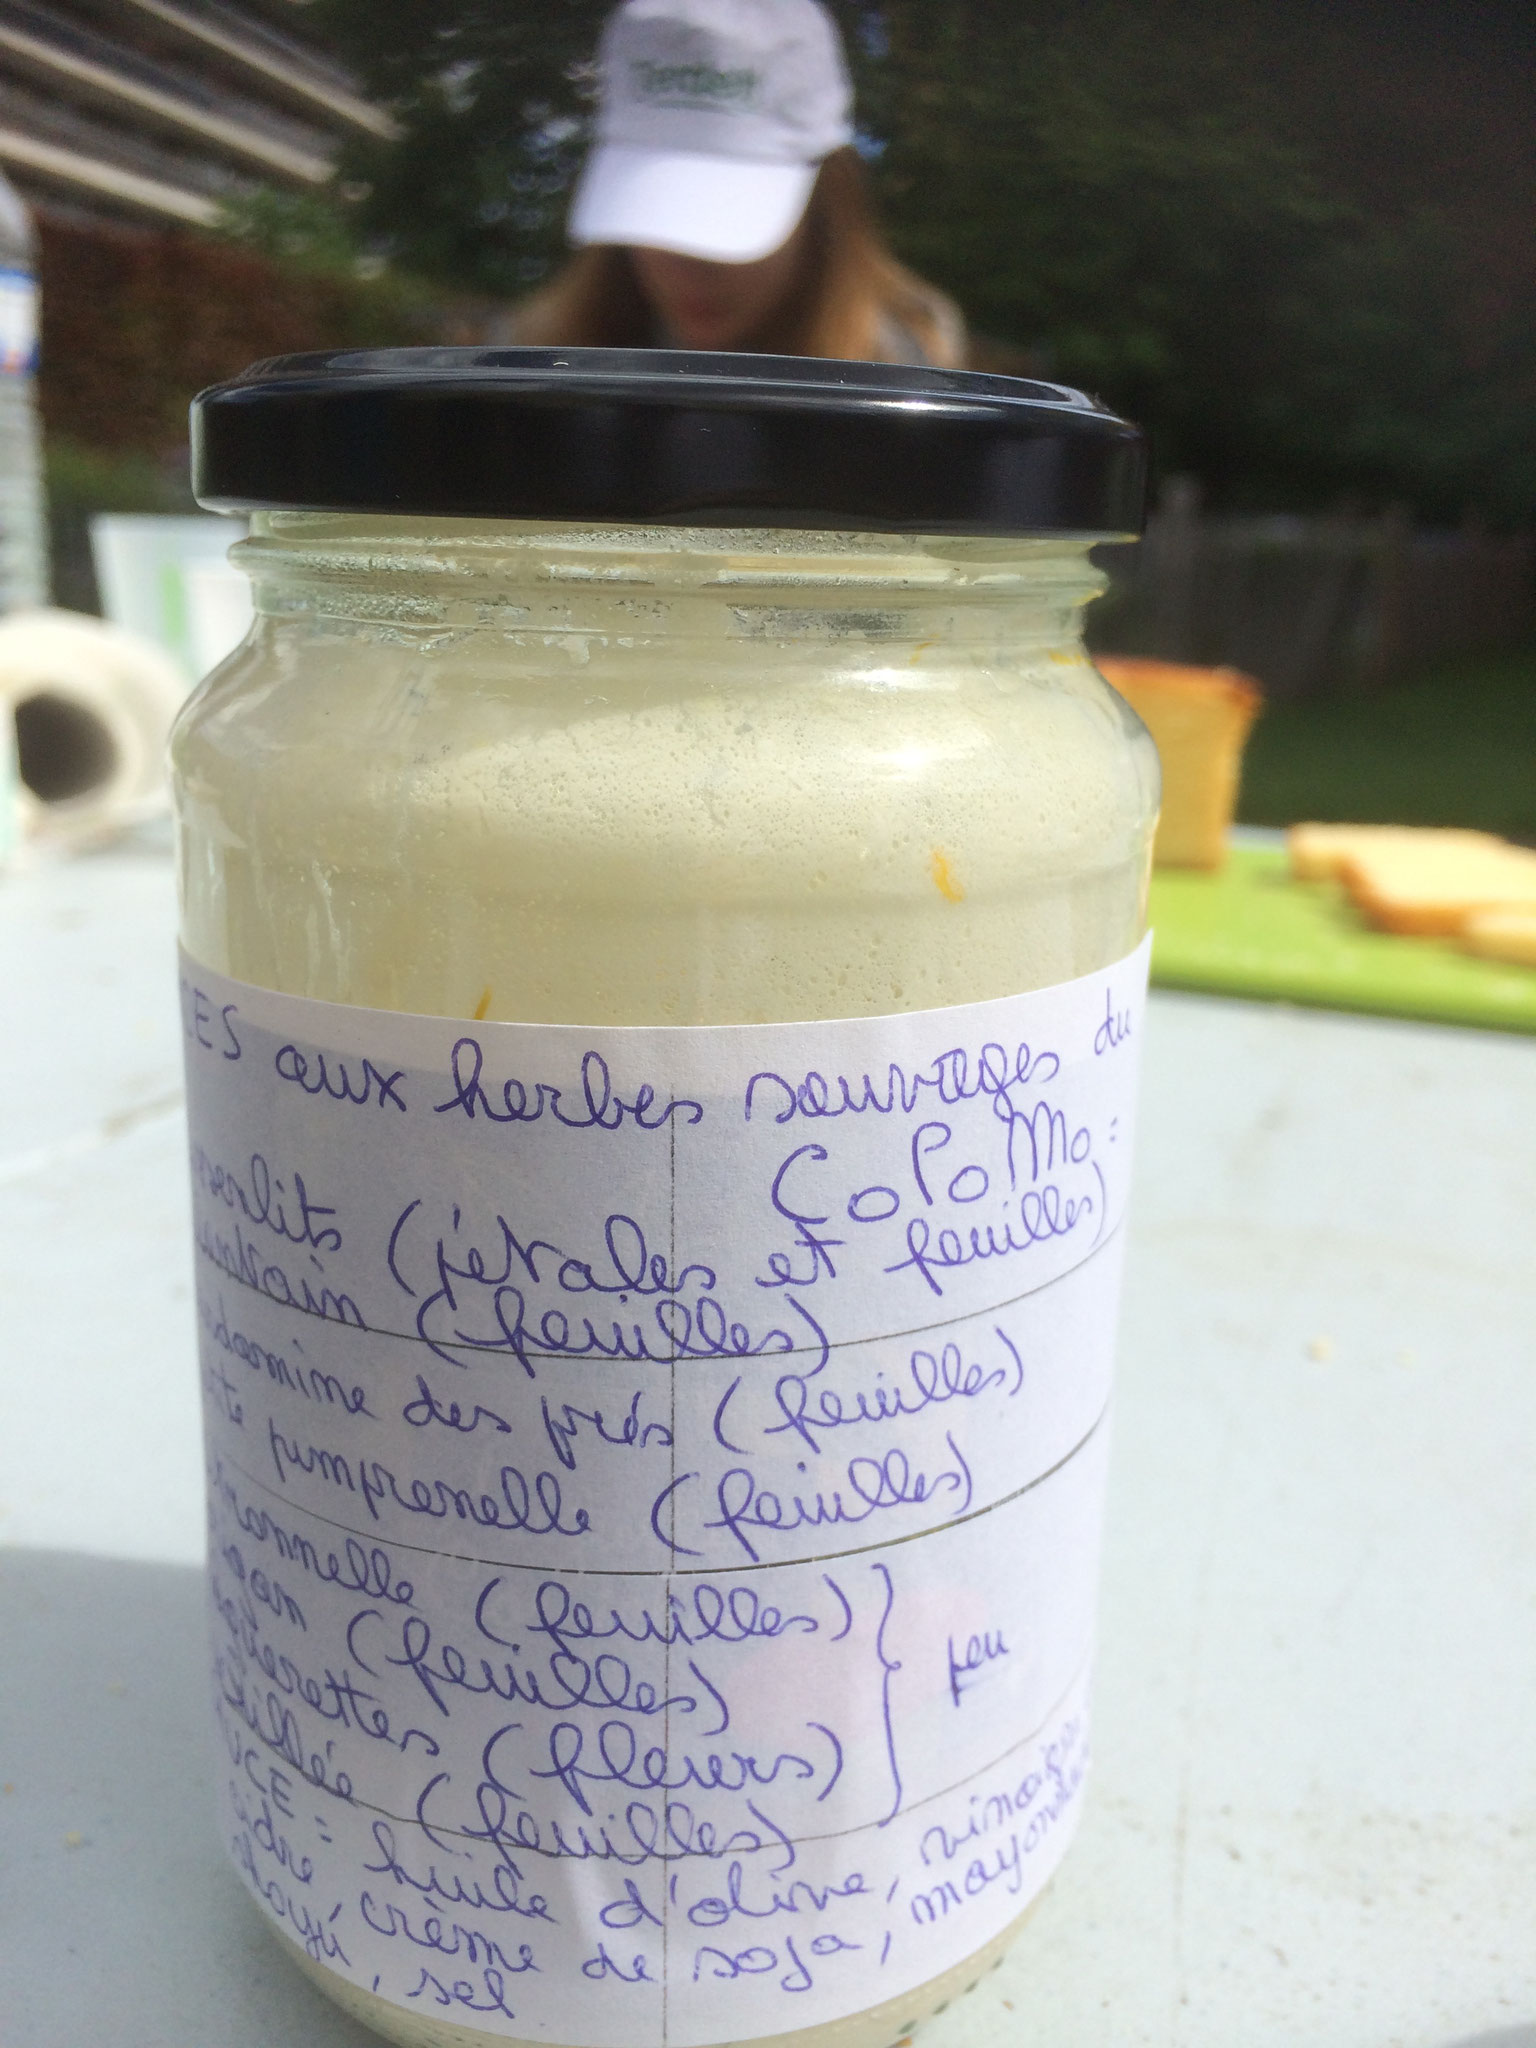 CES aux herbes sauvages du
CoPoMo :
(pétales et feuilles)
(feuilles)
des prés (feuilles)
pimprenelle (feuilles)
ronnelle (feuilles)
(feuilles)
querettes (fleurs)
(feuilles)
peu
UCE : huile d'olive, vinaigre
cidre, crème de soja, mayonnaise
sel